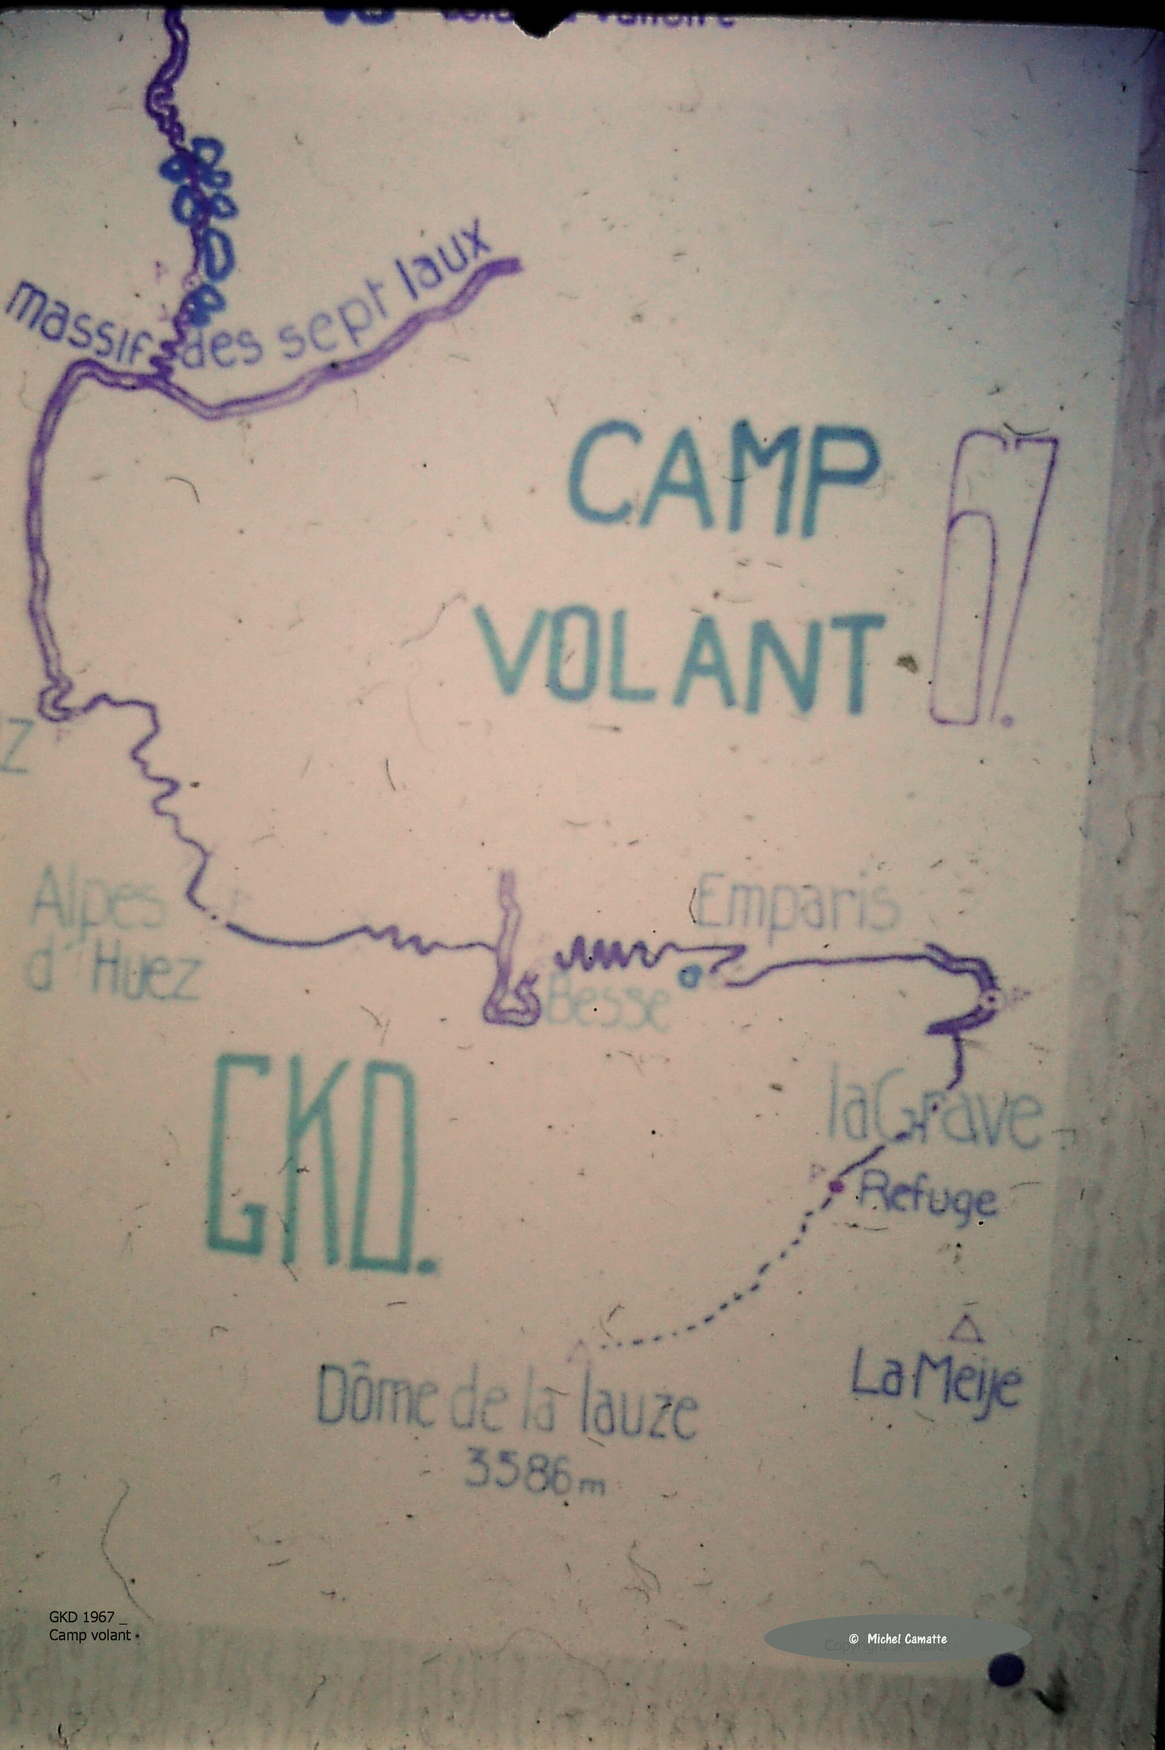 massif des sept laux
CAMP
VOLANT
Z
Alpes
d'Huez
Emparis
Besse
GKD.
la Grave
Refuge
La Meije
Dôme de la lauze
3586m
GKD 1967 _
Camp volant
© Michel Camatte